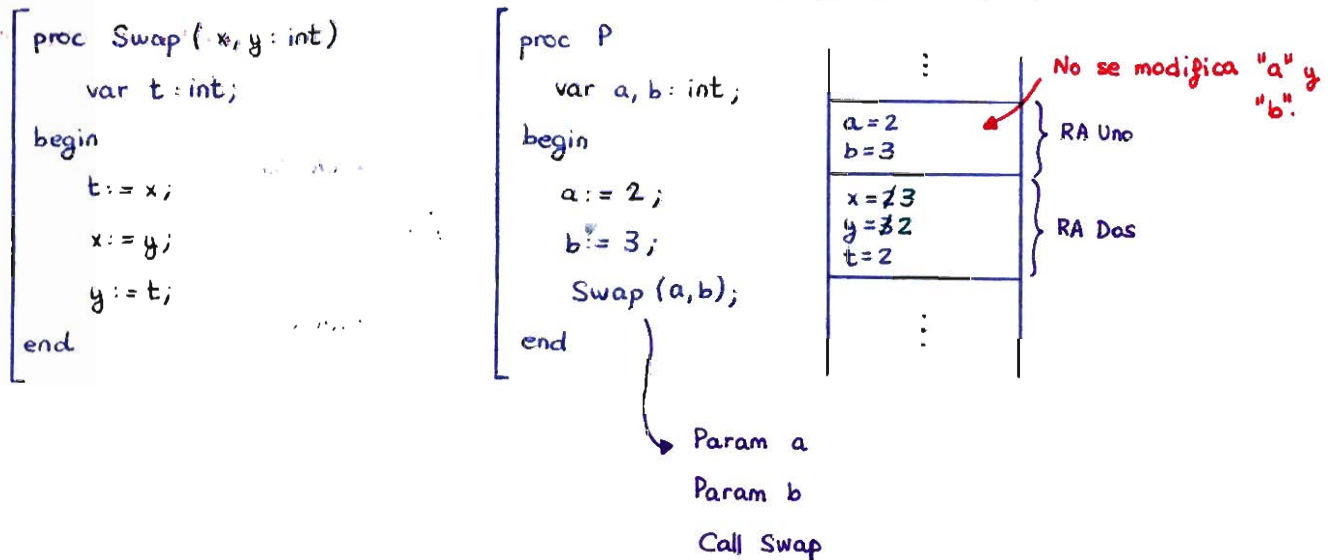 proc Swap ( x, y : int)
var t : int;
begin
t := x;
x := y;
y := t;
end
proc P
var a, b : int;
begin
a := 2;
b := 3;
Swap (a,b);
end
Param a
Param b
Call Swap
⋮
a = 2
b = 3
x = 2 3
y = 3 2
t = 2
⋮
RA Uno
RA Dos
No se modifica "a" y
"b".